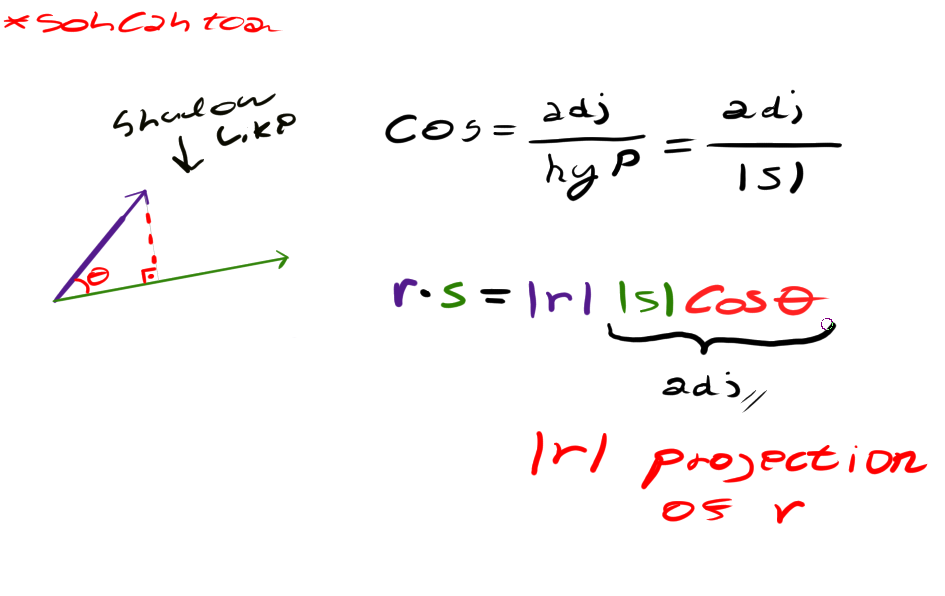 *sohcahtoa
shadow
like
θ
cos = adj / hyp = adj / |s|
r·s = |r| |s| cosθ
adj //
|r| projection
of r